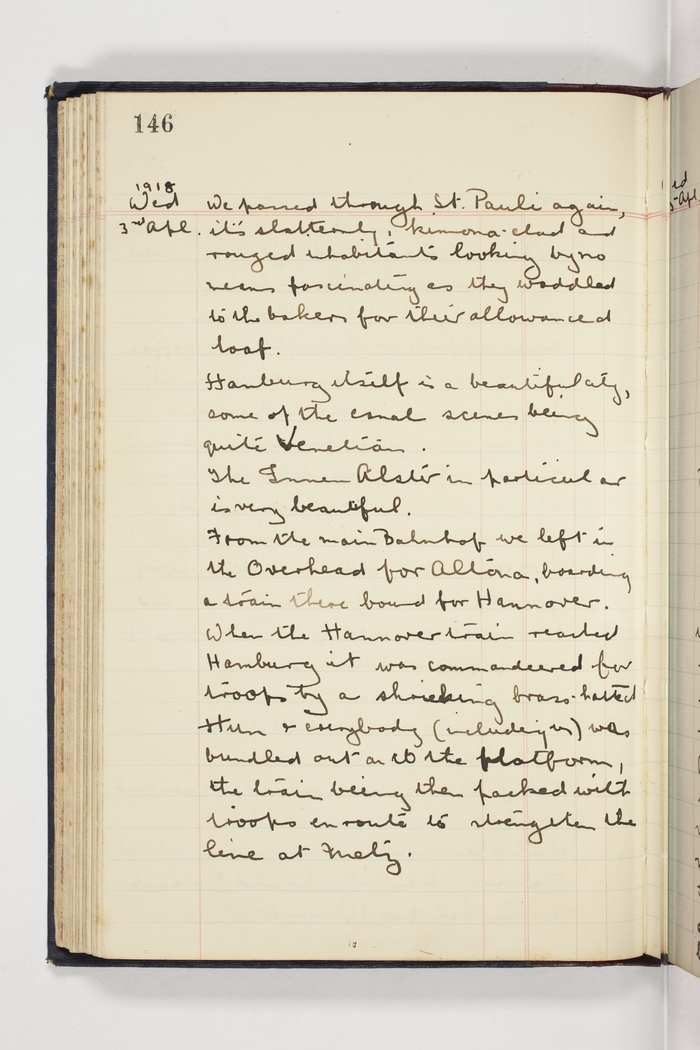 146
1918
Wed We passed through St. Pauli again,
3rd Apl. it's slatternly, kimona-clad and
rouged inhabitants looking by no
means fascinating as they waddled
to the bakers for their allowanced
loaf.
Hamburg itself is a beautiful city,
some of the canal scenes being
quite Venetian.
The Innen Alster in particular
is very beautiful.
From the main Bahnhof we left in
the Overhead for Altona, boarding
a train there bound for Hannover.
When the Hannover train reached
Hamburg it was commandeered for
troops by a shrieking brass-hatted
Hun & everybody (including us) was
bundled out on to the platform,
the train being then packed with
troops en route to strengthen the
line at Metz.